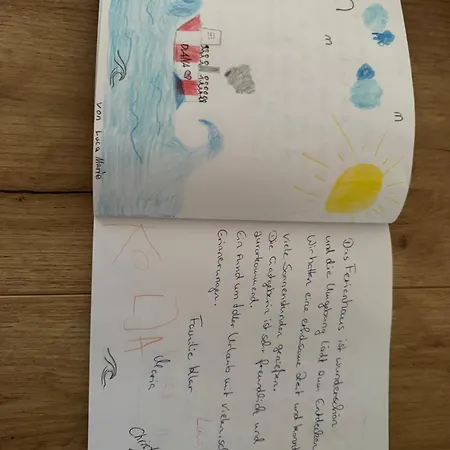 von Luca Marie
DANA
Das Ferienhaus ist wunderschön
und die Umgebung lädt zum Entdecken
Wir hatten eine erholsame Zeit und konnten
viele Sonnenstunden genießen.
Die Gastgeberin ist sehr freundlich und
zuvorkommend.
Ein rund um toller Urlaub mit vielen
Erinnerungen.
Familie
Maria